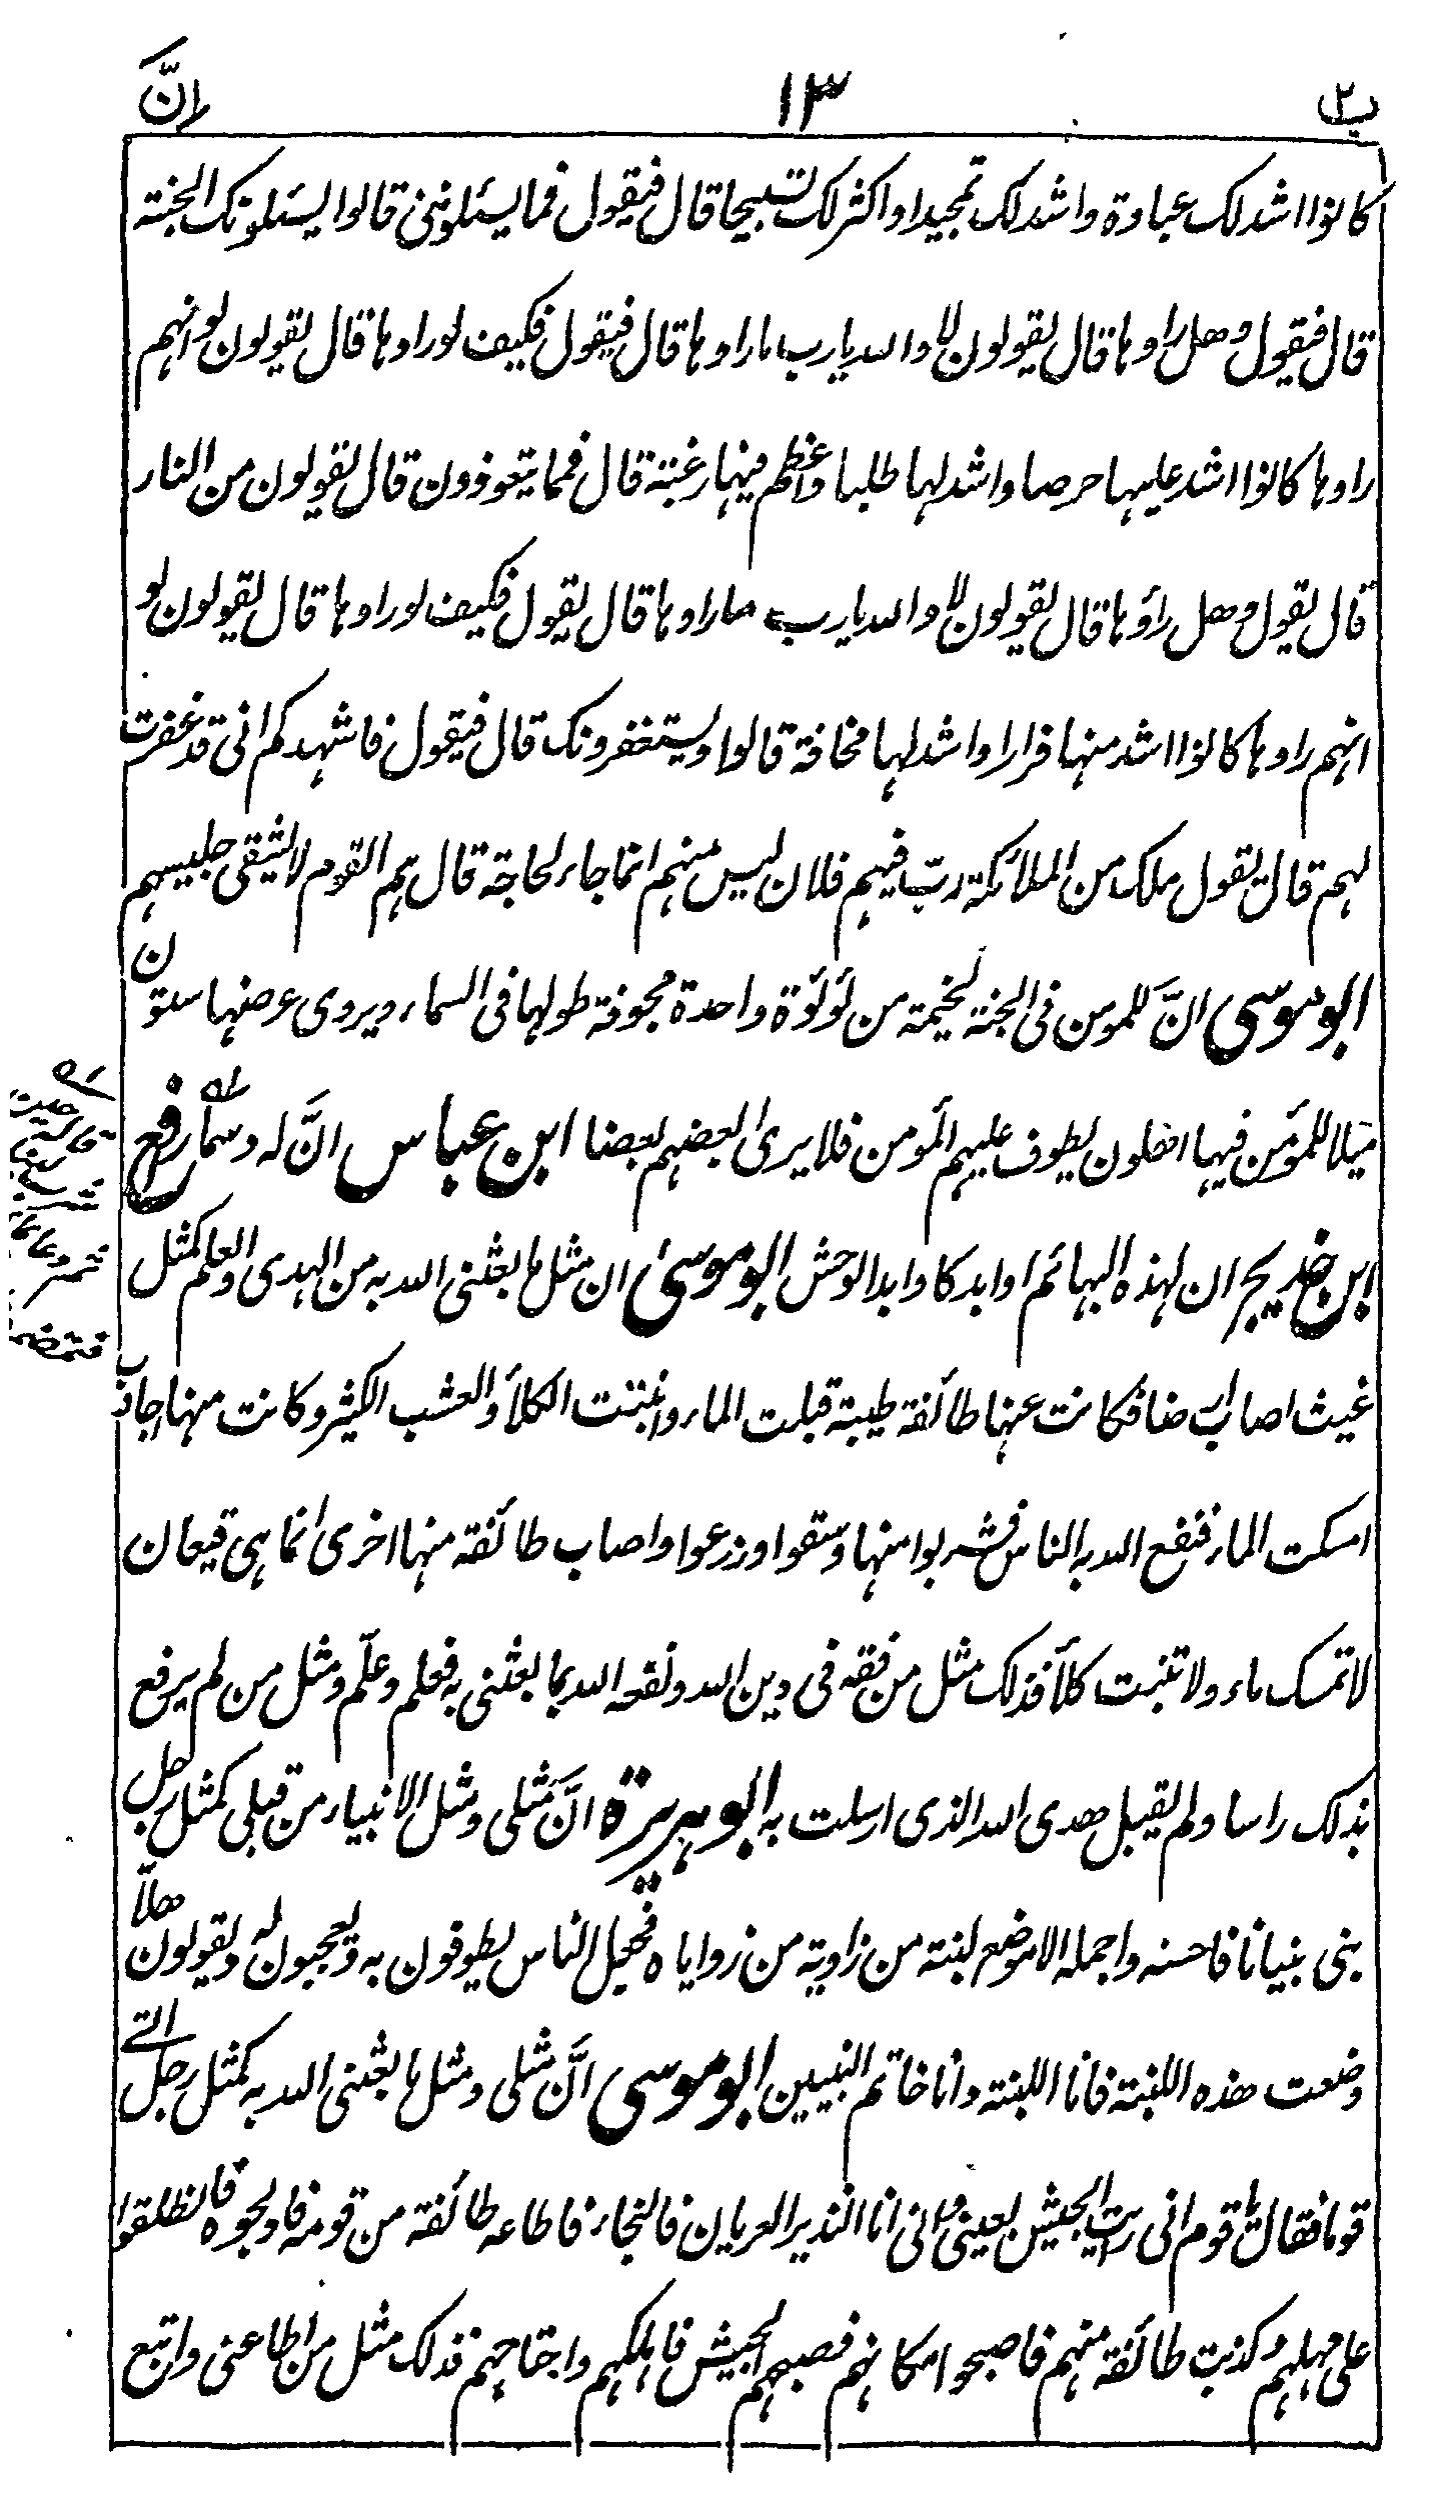 ب٢ ١٣ اِنَّ
كانوا اشد لك عبادة واشد لك تمجيدا واكثر لك تسبيحا قال فيقول فما يسئلونى قالوا يسئلونك الجنة
قال فيقول وهل راوها قال يقولون لا والله يا رب ما راوها قال فيقول فكيف لو راوها قال يقولون لو انهم
راوها كانوا اشد عليها حرصا واشد لها طلبا واعظم فيها رغبة قال فمما يتعوذون قال يقولون من النار
قال يقول وهل رأوها قال يقولون لا والله يا رب ما راوها قال يقول فكيف لو راوها قال يقولون لو
انهم راوها كانوا اشد منها فرارا واشد لها مخافة قالوا ويستغفرونك قال فيقول فاشهدكم انى قد غفرت
لهم قال يقول ملك من الملائكة رب فيهم فلان ليس منهم انما جاء لحاجة قال هم القوم لا يشقى جليسهم
ابو موسى انَّ للمومن فى الجنة لخيمة من لؤلؤة واحدة مجوفة طولها فى السماء ويروى عرضها ستون
ميلا للمؤمن فيها اهلون يطوف عليهم المؤمن فلا يرى بعضهم بعضا ابن عباس انَّ له دسما رافع
ابن خديج ان لهذه البهائم اوابد كاوابد الوحش ابو موسى ان مثل ما بعثنى الله به من الهدى والعلم كمثل
غيث اصاب ارضا فكانت عنها طائفة طيبة قبلت الماء وانبتت الكلأ والعشب الكثير وكانت منها اجاذب
امسكت الماء فنفع الله به الناس فشربوا منها وسقوا وزرعوا واصاب طائفة منها اخرى انما هى قيعان
لا تمسك ماء ولا تنبت كلأ فذلك مثل من فقه فى دين الله ونفعه الله بما بعثنى به فعلم وعلّم ومثل من لم يرفع
بذلك راسا ولم يقبل هدى الله الذى ارسلت به ابو هريرة انَّ مثلى ومثل الانبياء من قبلى كمثل رجل
بنى بنيانا فاحسنه واجمله الا موضع لبنة من زاوية من زواياه فجعل الناس يطوفون به ويعجبون له ويقولون هلّا
وضعت هذه اللبنة فانا اللبنة وانا خاتم النبيين ابو موسى انَّ مثلى ومثل ما بعثنى الله به كمثل رجل اتى
قوما فقال يا قوم انى رايت الجيش بعينى وانى انا النذير العريان فالنجاء فاطاعه طائفة من قومه فادلجوا فانطلقوا
على مهلهم وكذبت طائفة منهم فاصبحوا مكانهم فصبحهم الجيش فاهلكهم واجتاحهم فذلك مثل من اطاعنى واتبع